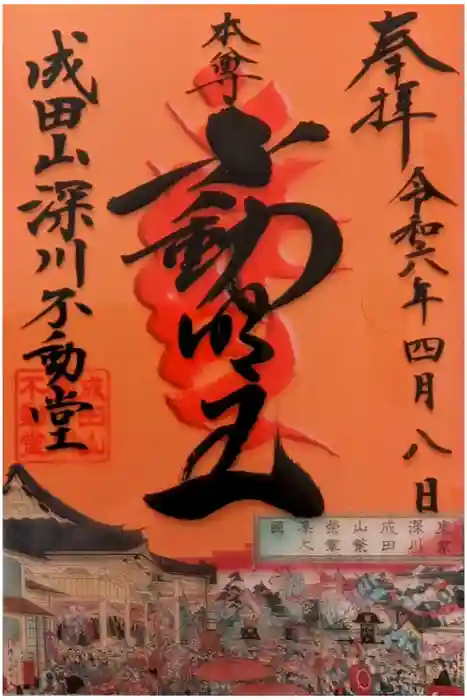 奉拝 令和六年四月八日
本尊
不動明王
成田山深川不動堂
成田山
不動堂
東京
深川
成田
山繁
榮繁